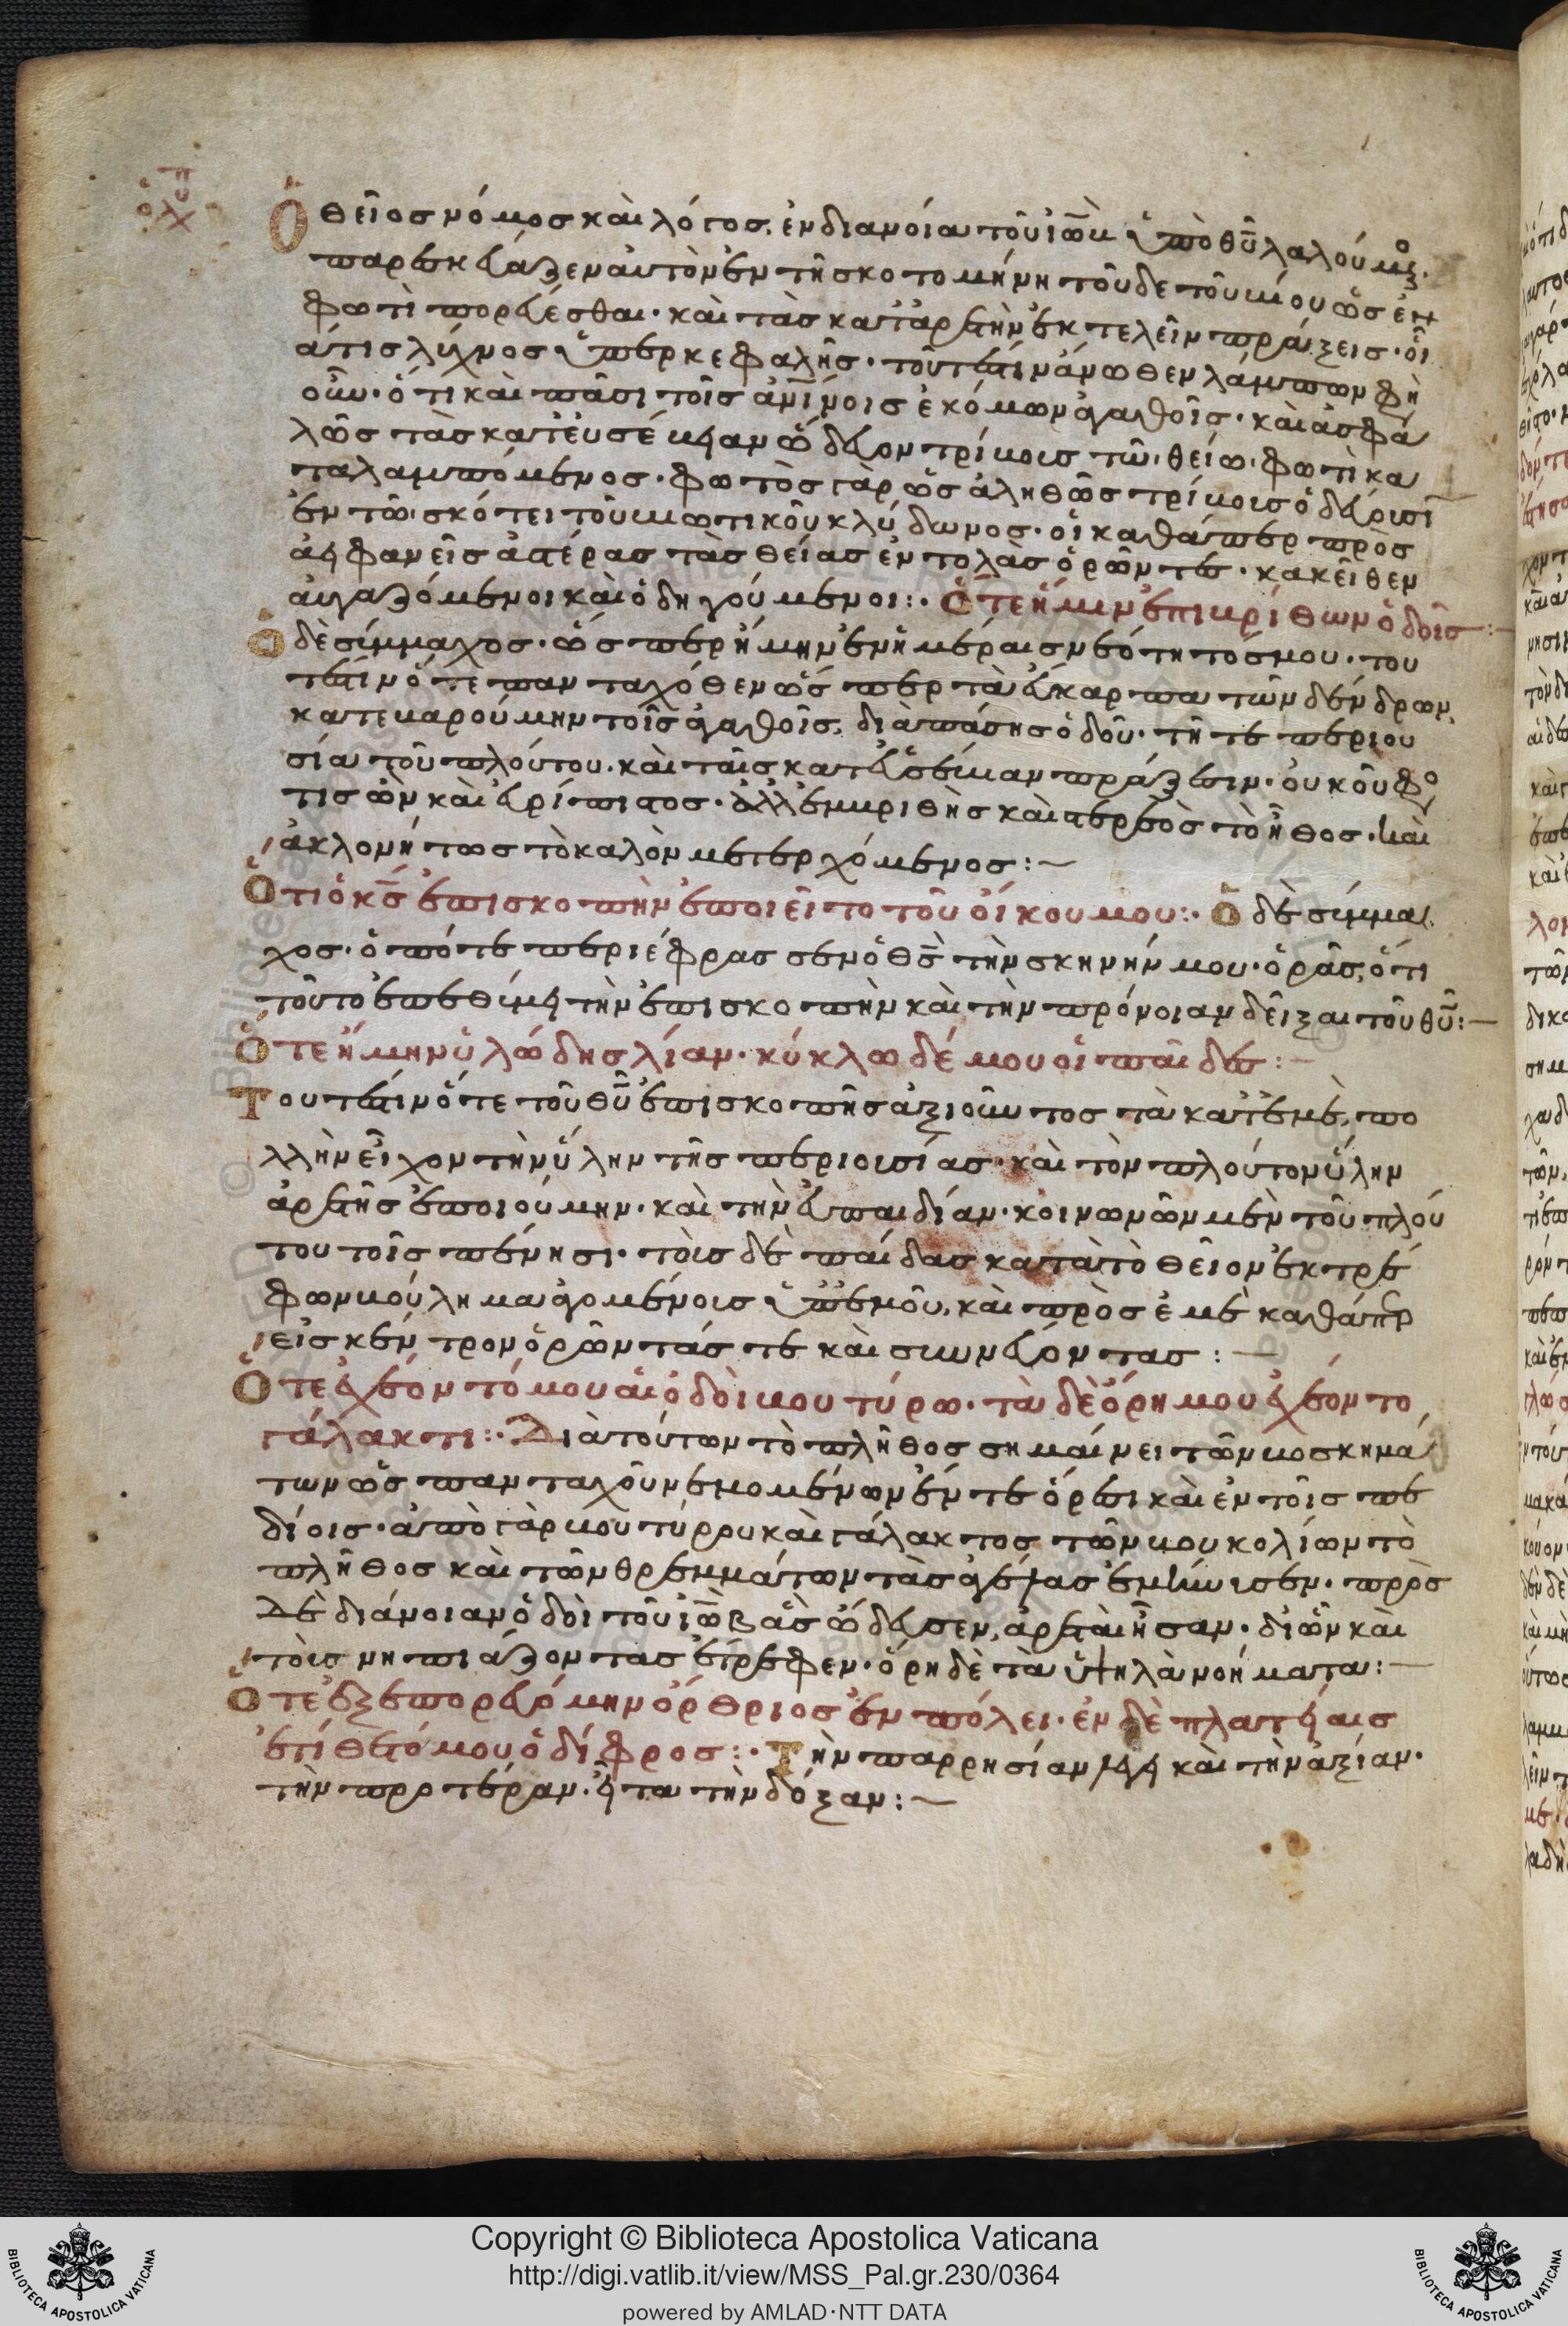 Ὁ θεῖος νόμος καὶ λόγος, ἐν διανοία τοῦ ἰὼβ ὑπὸ θῦ λαλούμενος
παρεσκεύαζεν αὐτὸν ἐν τῆ σκοτομήνη τοῦδε τοῦ βίου ὡς ἐν
φωτὶ πορεύεσθαι· καὶ τὰς κατ' ἀρετὴν ἐκτελεῖν πράξεις· οἷ
ά τις λύχνος ὑπὲρ κεφαλῆς· τουτέστιν ἄνωθεν λάμπων φη
οὖν· ὅτι καὶ πᾶσι τοῖς ἀνοις ἐκόμων ἀγαθοῖς· καὶ ἀσφα
λῶς τὰς κατ' εὐσέβειαν ὥδευον τρίβους τῶ θείω φωτὶ κα
ταλαμπόμενος· φωτὸς γὰρ ὡς ἀληθῶς τρίβους ὁδεύουσι
ἐν τῶ σκότει τοῦ βιωτικοῦ κλύδωνος· οἱ καθάπερ πρὸς
ἀειφανεῖς ἀστέρας τὰς θείας ἐντολὰς ὁρῶντες· κακεῖθεν
αὐγαζόμενοι καὶ ὁδηγούμενοι:· Ὅτε ἤμην ἐπιβρίθων ὁδοῖς:—
Ὁ δὲ σύμμαχος· ὥσπερ ἤμην ἐν ἡμέραις νεότητός μου· του
τέστιν ὅτε πανταχόθεν ὥσπερ τὰ εὔκαρπα τῶν δένδρων,
κατεβαρούμην τοῖς ἀγαθοῖς, διὰ πάσης ὁδοῦ· τῆ τε περιου
σία τοῦ πλούτου· καὶ ταῖς κατ' εὐσέβειαν πράξεσιν· οὐ κοῦφό
τις ὢν καὶ εὐρίπιστος· ἀλλ' ἐμβριθὴς καὶ στερεὸς τὸ ἦθος· καὶ
ἀκλονήτως τὸ καλὸν μετερχόμενος:~
Ὅτι ὁ κς ἐπισκοπὴν ἐποιεῖτο τοῦ οἴκου μου:· Ὁ δὲ σύμμα
χος· ὁπότε περιέφρασσεν ὁ θς τὴν σκηνήν μου· ὁρᾶς, ὅτι
τοῦτο ἐπεθύμει τὴν ἐπισκοπὴν καὶ τὴν πρόνοιαν δεῖξαι τοῦ θῦ:—
Ὅτε ἤμην ὑλώδης λίαν· κύκλω δέ μου οἱ παῖδες:—
Τουτέστιν ὅτε τοῦ θῦ ἐπισκοπῆς ἀξιοῦντος τὰ κατ' ἐμὲ, πο
λλὴν εἶχον τὴν ὕλην τῆς περιουσίας· καὶ τὸν πλοῦτον ὕλην
ἀρετῆς ἐποιούμην· καὶ τὴν εὐπαιδίαν· κοινωνῶν μὲν τοῦ πλού
του τοῖς πένησι· τοὺς δὲ παῖδας κατὰ τὸ θεῖον ἐκτρέ
φων βούλημα ἀγομένους ὑπ' ἐμοῦ, καὶ πρὸς ἐμὲ καθάπερ
εἰς κέντρον ὁρῶντάς τε καὶ σιωνεύοντας:—
Ὅτε ἐχέοντό μου αἱ ὁδοὶ βουτύρω· τὰ δὲ ὄρη μου ἐχέοντο
γάλακτι:· Διὰ τούτων τὸ πλῆθος σημαίνει τῶν βοσκημά
των ὡς πανταχοῦ νεμομένων ἔν τε ὄρεσι καὶ ἐν τοῖς πε
δίοις· ἀπὸ γὰρ βουτύρου καὶ γάλακτος τῶν βουκολίων τὸ
πλῆθος καὶ τῶν θρεμμάτων τὰς ἀγέλας ἐμήνυσεν· πρὸς
δὲ διάνοιαν ὁδοὶ τοῦ ἰὼβ ἃς ὥδευσεν, ἀρεταὶ ἦσαν· δι' ὧν καὶ
τοὺς νηπιάζοντας ἔτρεφεν· ὄρη δὲ τὰ ὑψηλὰ νοήματα:—
Ὅτε ἐξεπορευόμην ὄρθριος ἐν πόλει· ἐν δὲ πλατείαις
ἐτίθετό μου ὁ δίφρος:· Τὴν παρρησίαν λέγει καὶ τὴν ἀξίαν·
τὴν προτέραν· εἶτα τὴν δόξαν:~
Copyright © Biblioteca Apostolica Vaticana
http://digi.vatlib.it/view/MSS_Pal.gr.230/0364
powered by AMLAD·NTT DATA
BIBLIOTECA APOSTOLICA VATICANA
BIBLIOTECA APOSTOLICA VATICANA